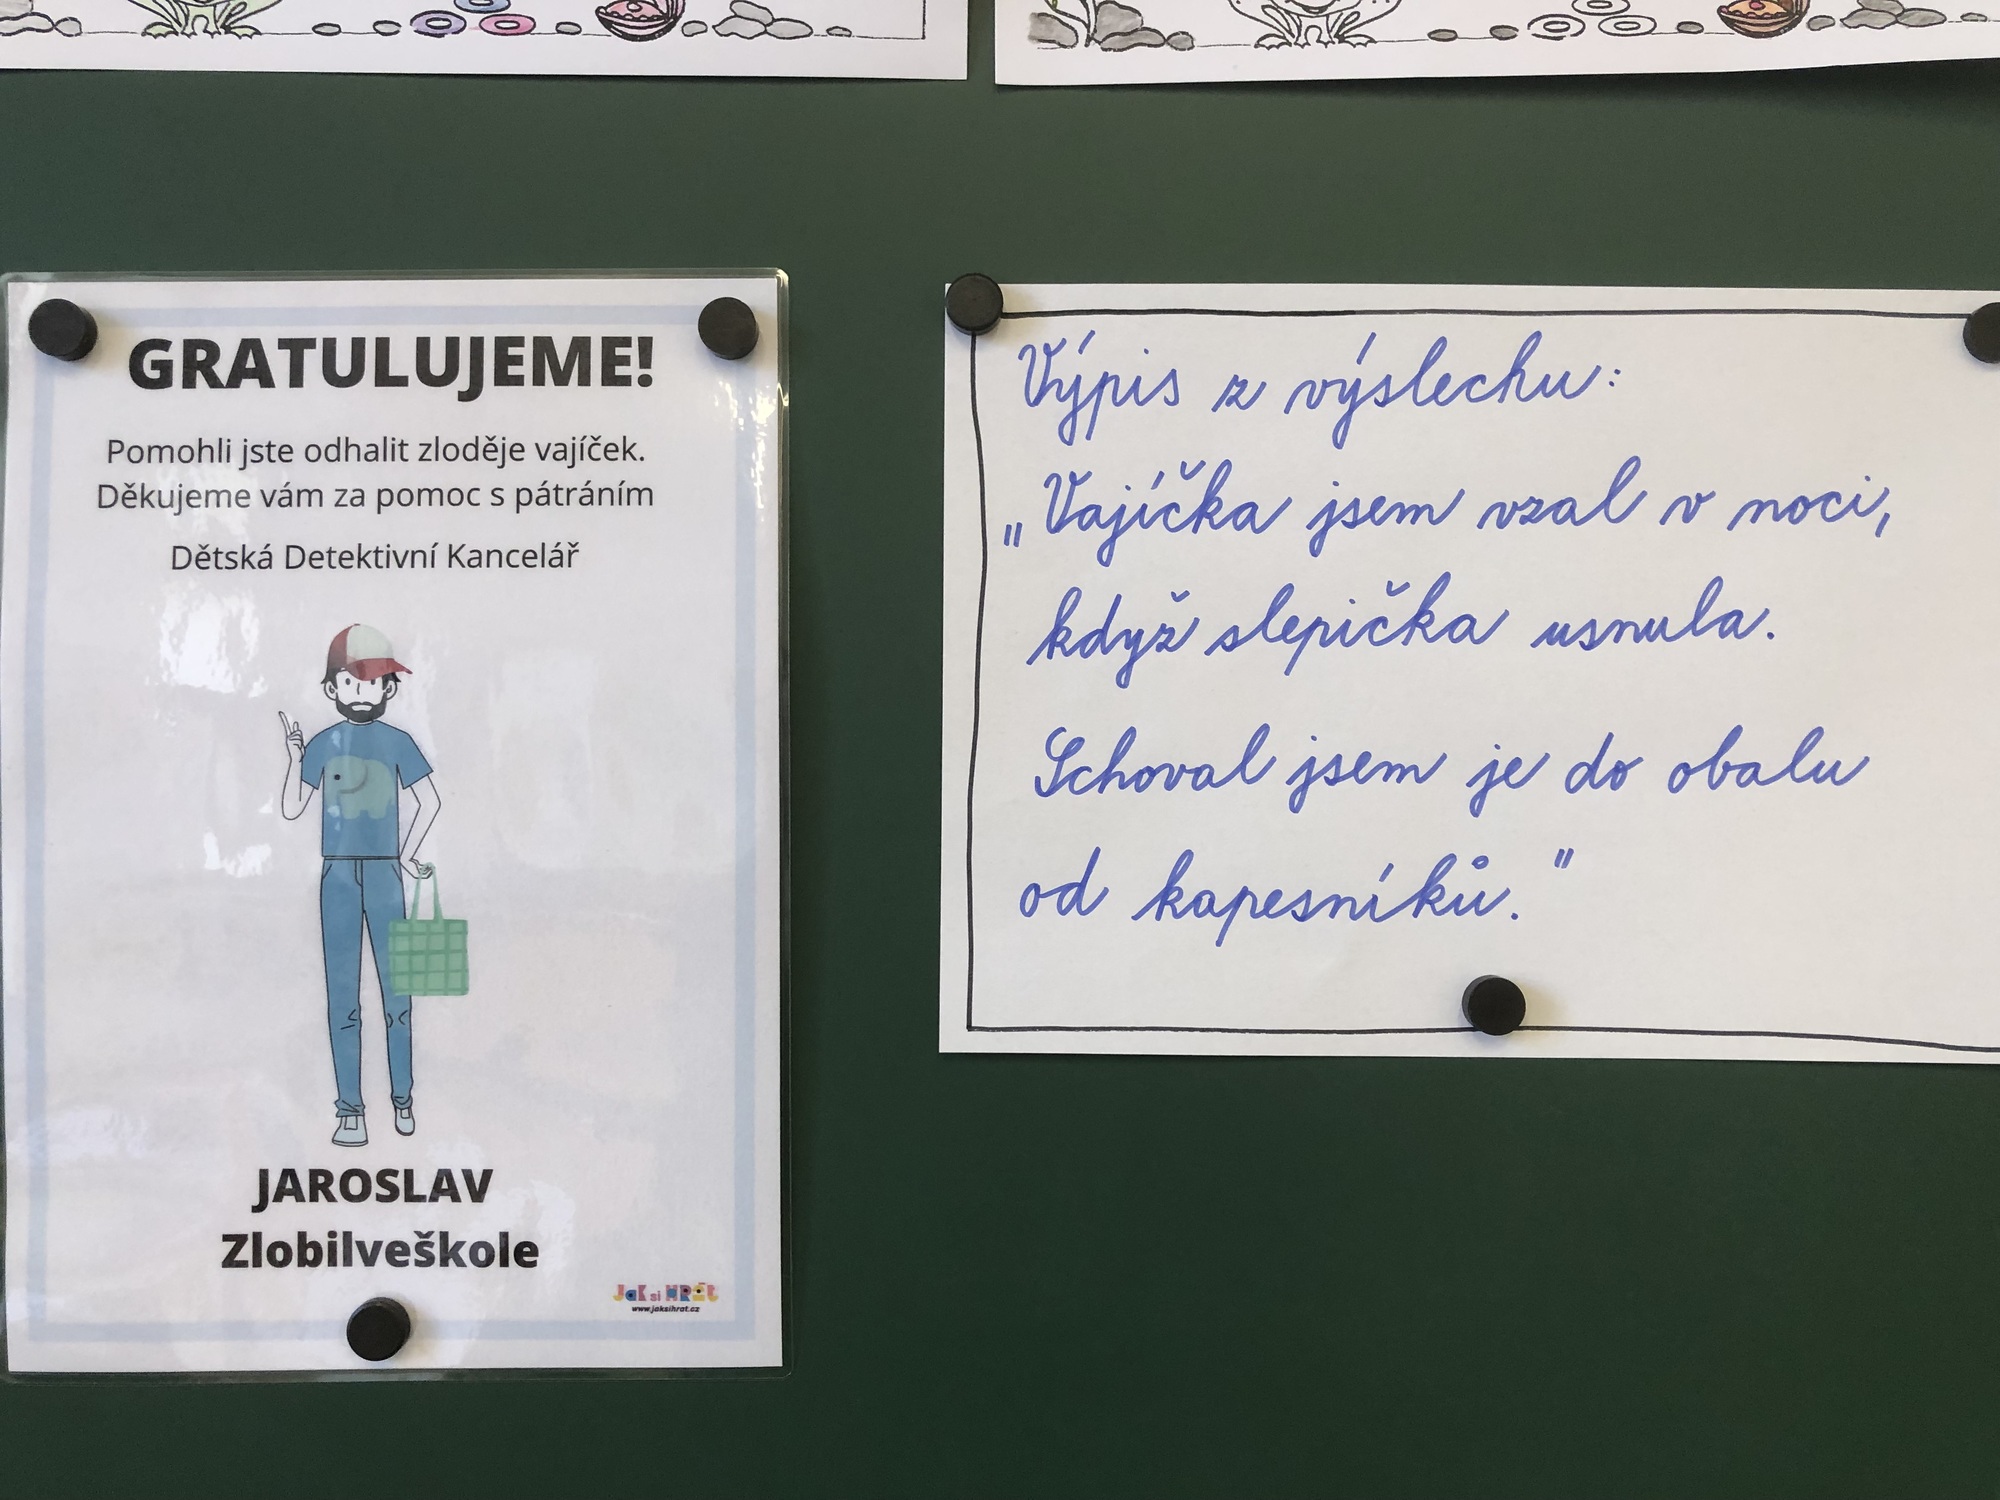 GRATULUJEME!
Pomohli jste odhalit zloděje vajíček.
Děkujeme vám za pomoc s pátráním
Dětská Detektivní Kancelář
JAROSLAV
Zlobilveškole
Jak si HRát
www.jaksihrat.cz
Výpis z výslechu:
„Vajíčka jsem vzal v noci,
když slepička usnula.
Schoval jsem je do obalu
od kapesníků."